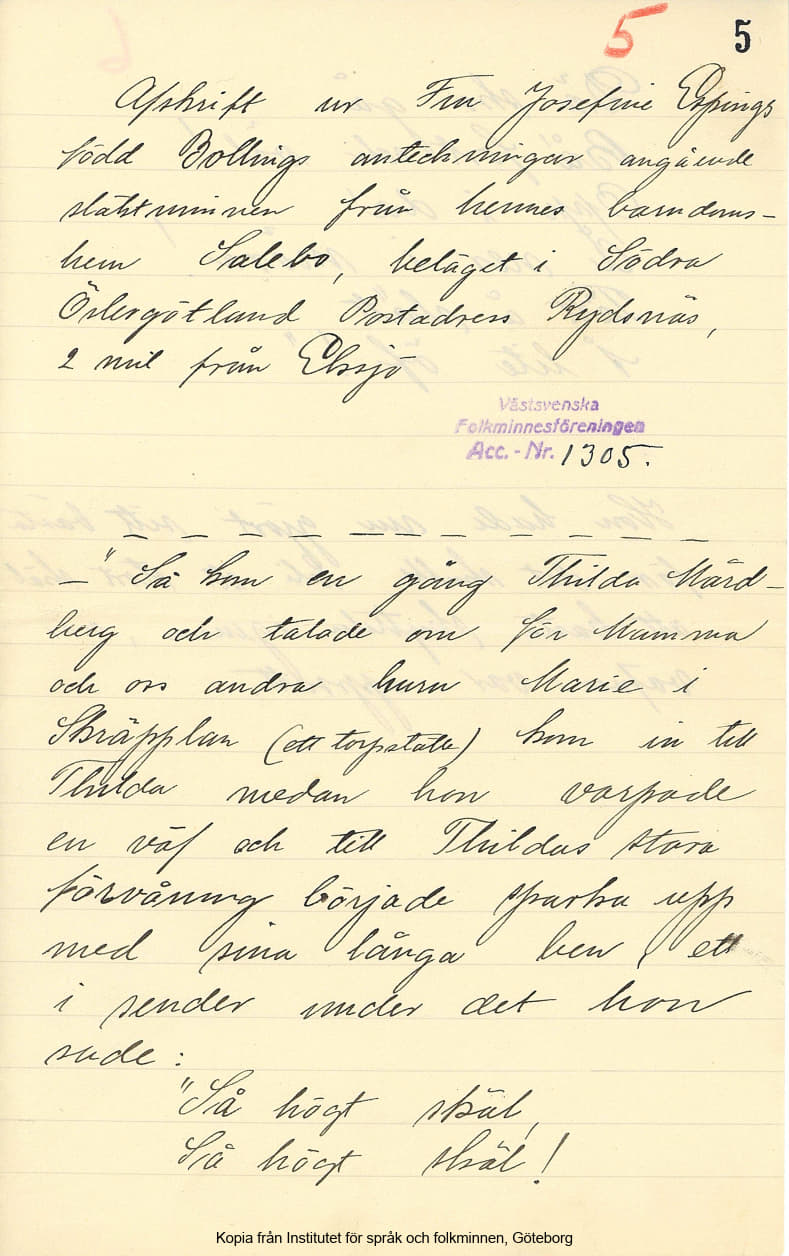 5 5
Afskrift ur Fru Josefine Eppings
född Bollings anteckningar angående
släktminnen från hennes barndoms-
hem Salebo, beläget i Södra
Östergötland Postadress Rydsnäs,
2 mil från Eksjö
Västsvenska
Folkminnesföreningen
Acc. - Nr. 1305.
— — — — — — — — — —
—"Så kom en gång Thilda Mård-
berg och talade om för Mamma
och oss andra huru Marie i
Skräpplan (ett torpställe) kom in till
Thilda medan hon varpade
en väf och till Thildas stora
förvåning började sparka upp
med sina långa ben, ett
i sender under det hon
sade:
"Så högt skäl,
Så högt skäl!
Kopia från Institutet för språk och folkminnen, Göteborg